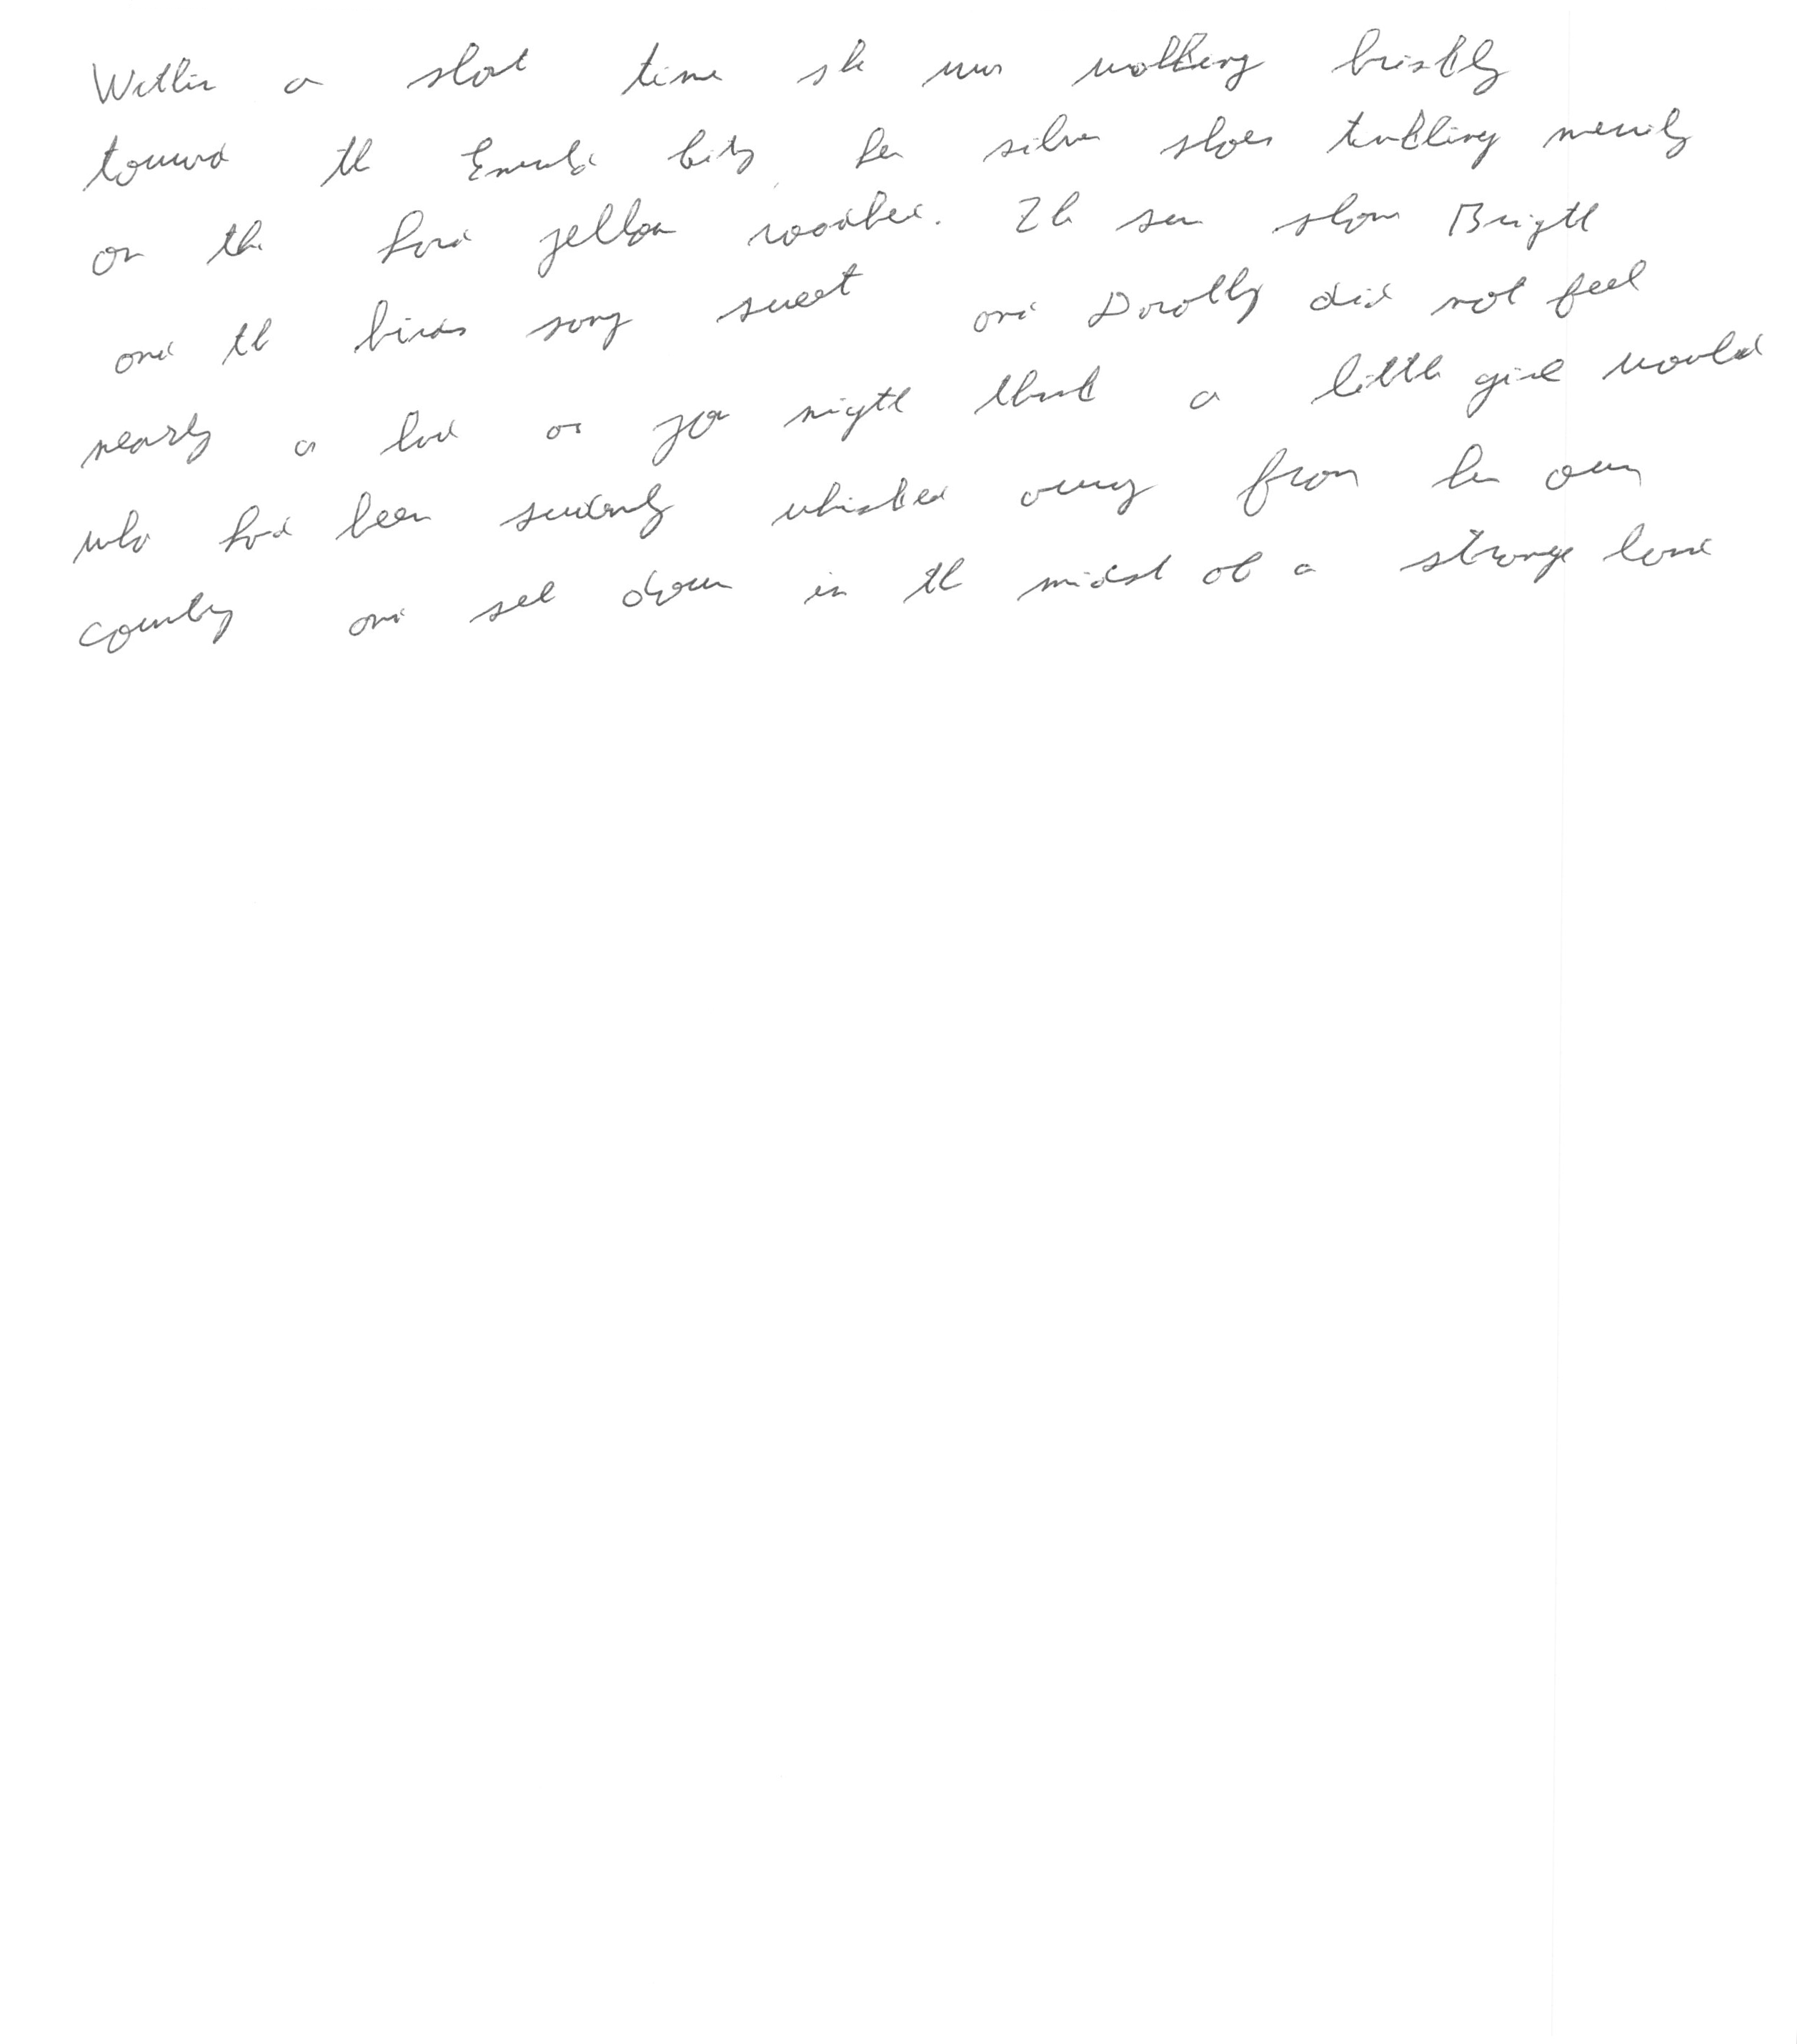 Within a short time she was walking briskly
toward the Emerald City, her silver shoes tinkling merrily
on the hard yellow roadbed. The sun shone Bright
and the birds sang sweet and Dorothy did not feel
nearly as bad as you might think a little girl would
who had been suddenly whisked away from her own
country and set down in the midst of a strange land